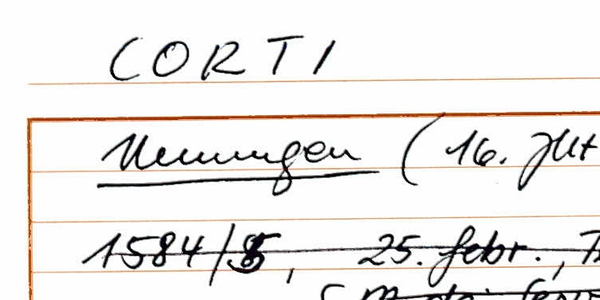 CORTI
Nennungen (16. Jh
1584/85, 25. febr.,